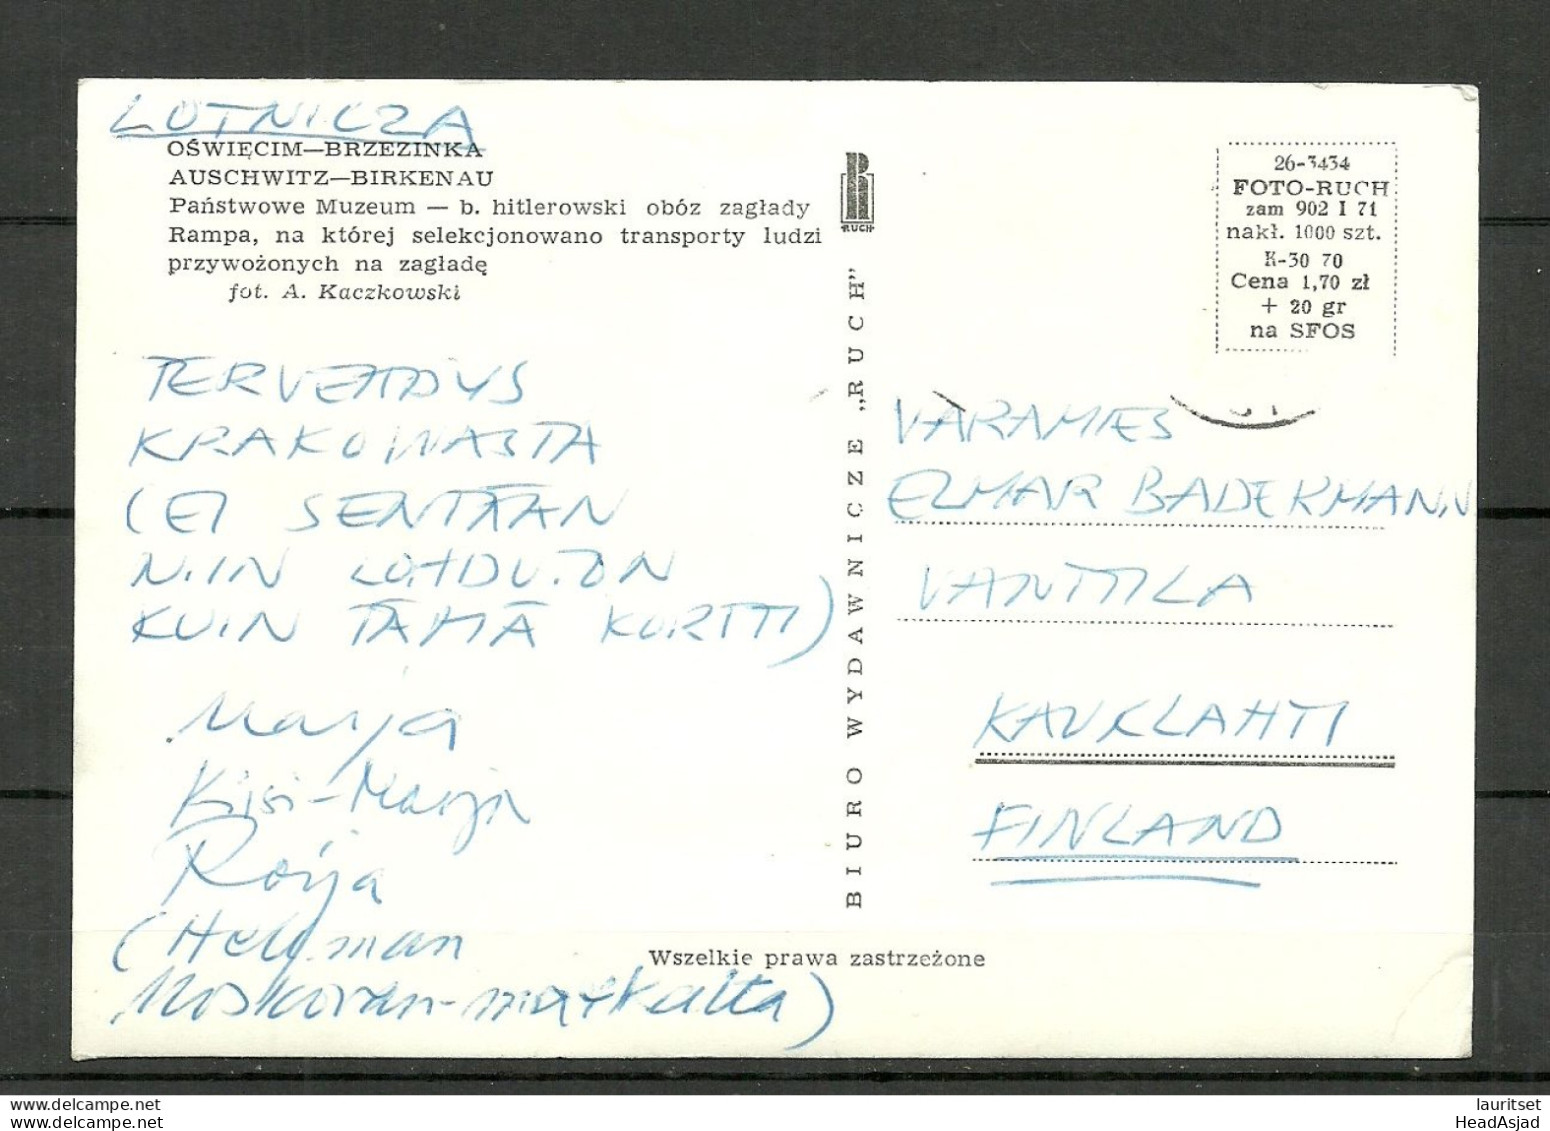 LOTNICZA
OŚWIĘCIM—BRZEZINKA
AUSCHWITZ—BIRKENAU
Państwowe Muzeum — b. hitlerowski obóz zagłady
Rampa, na której selekcjonowano transporty ludzi
przywożonych na zagładę
fot. A. Kaczkowski
TERVEHDYS
KRAKOWASTA
(EI SENTÄÄN
NIIN LOHDUTON
KUIN TÄMÄ KORTTI)
Marja
Kirsi-Marja
Roija
(Helsingin
Moskovan-matkalta)
BIURO WYDAWNICZE „RUCH"
R
RUCH
26-3434
FOTO-RUCH
zam 902 I 71
nakł. 1000 szt.
K-30 70
Cena 1,70 zł
+ 20 gr
na SFOS
VARAMIES
ELMAR BADERMANN
VANTTILA
KAUKLAHTI
FINLAND
Wszelkie prawa zastrzeżone
lauritset
www.delcampe.net
HeadAsjad